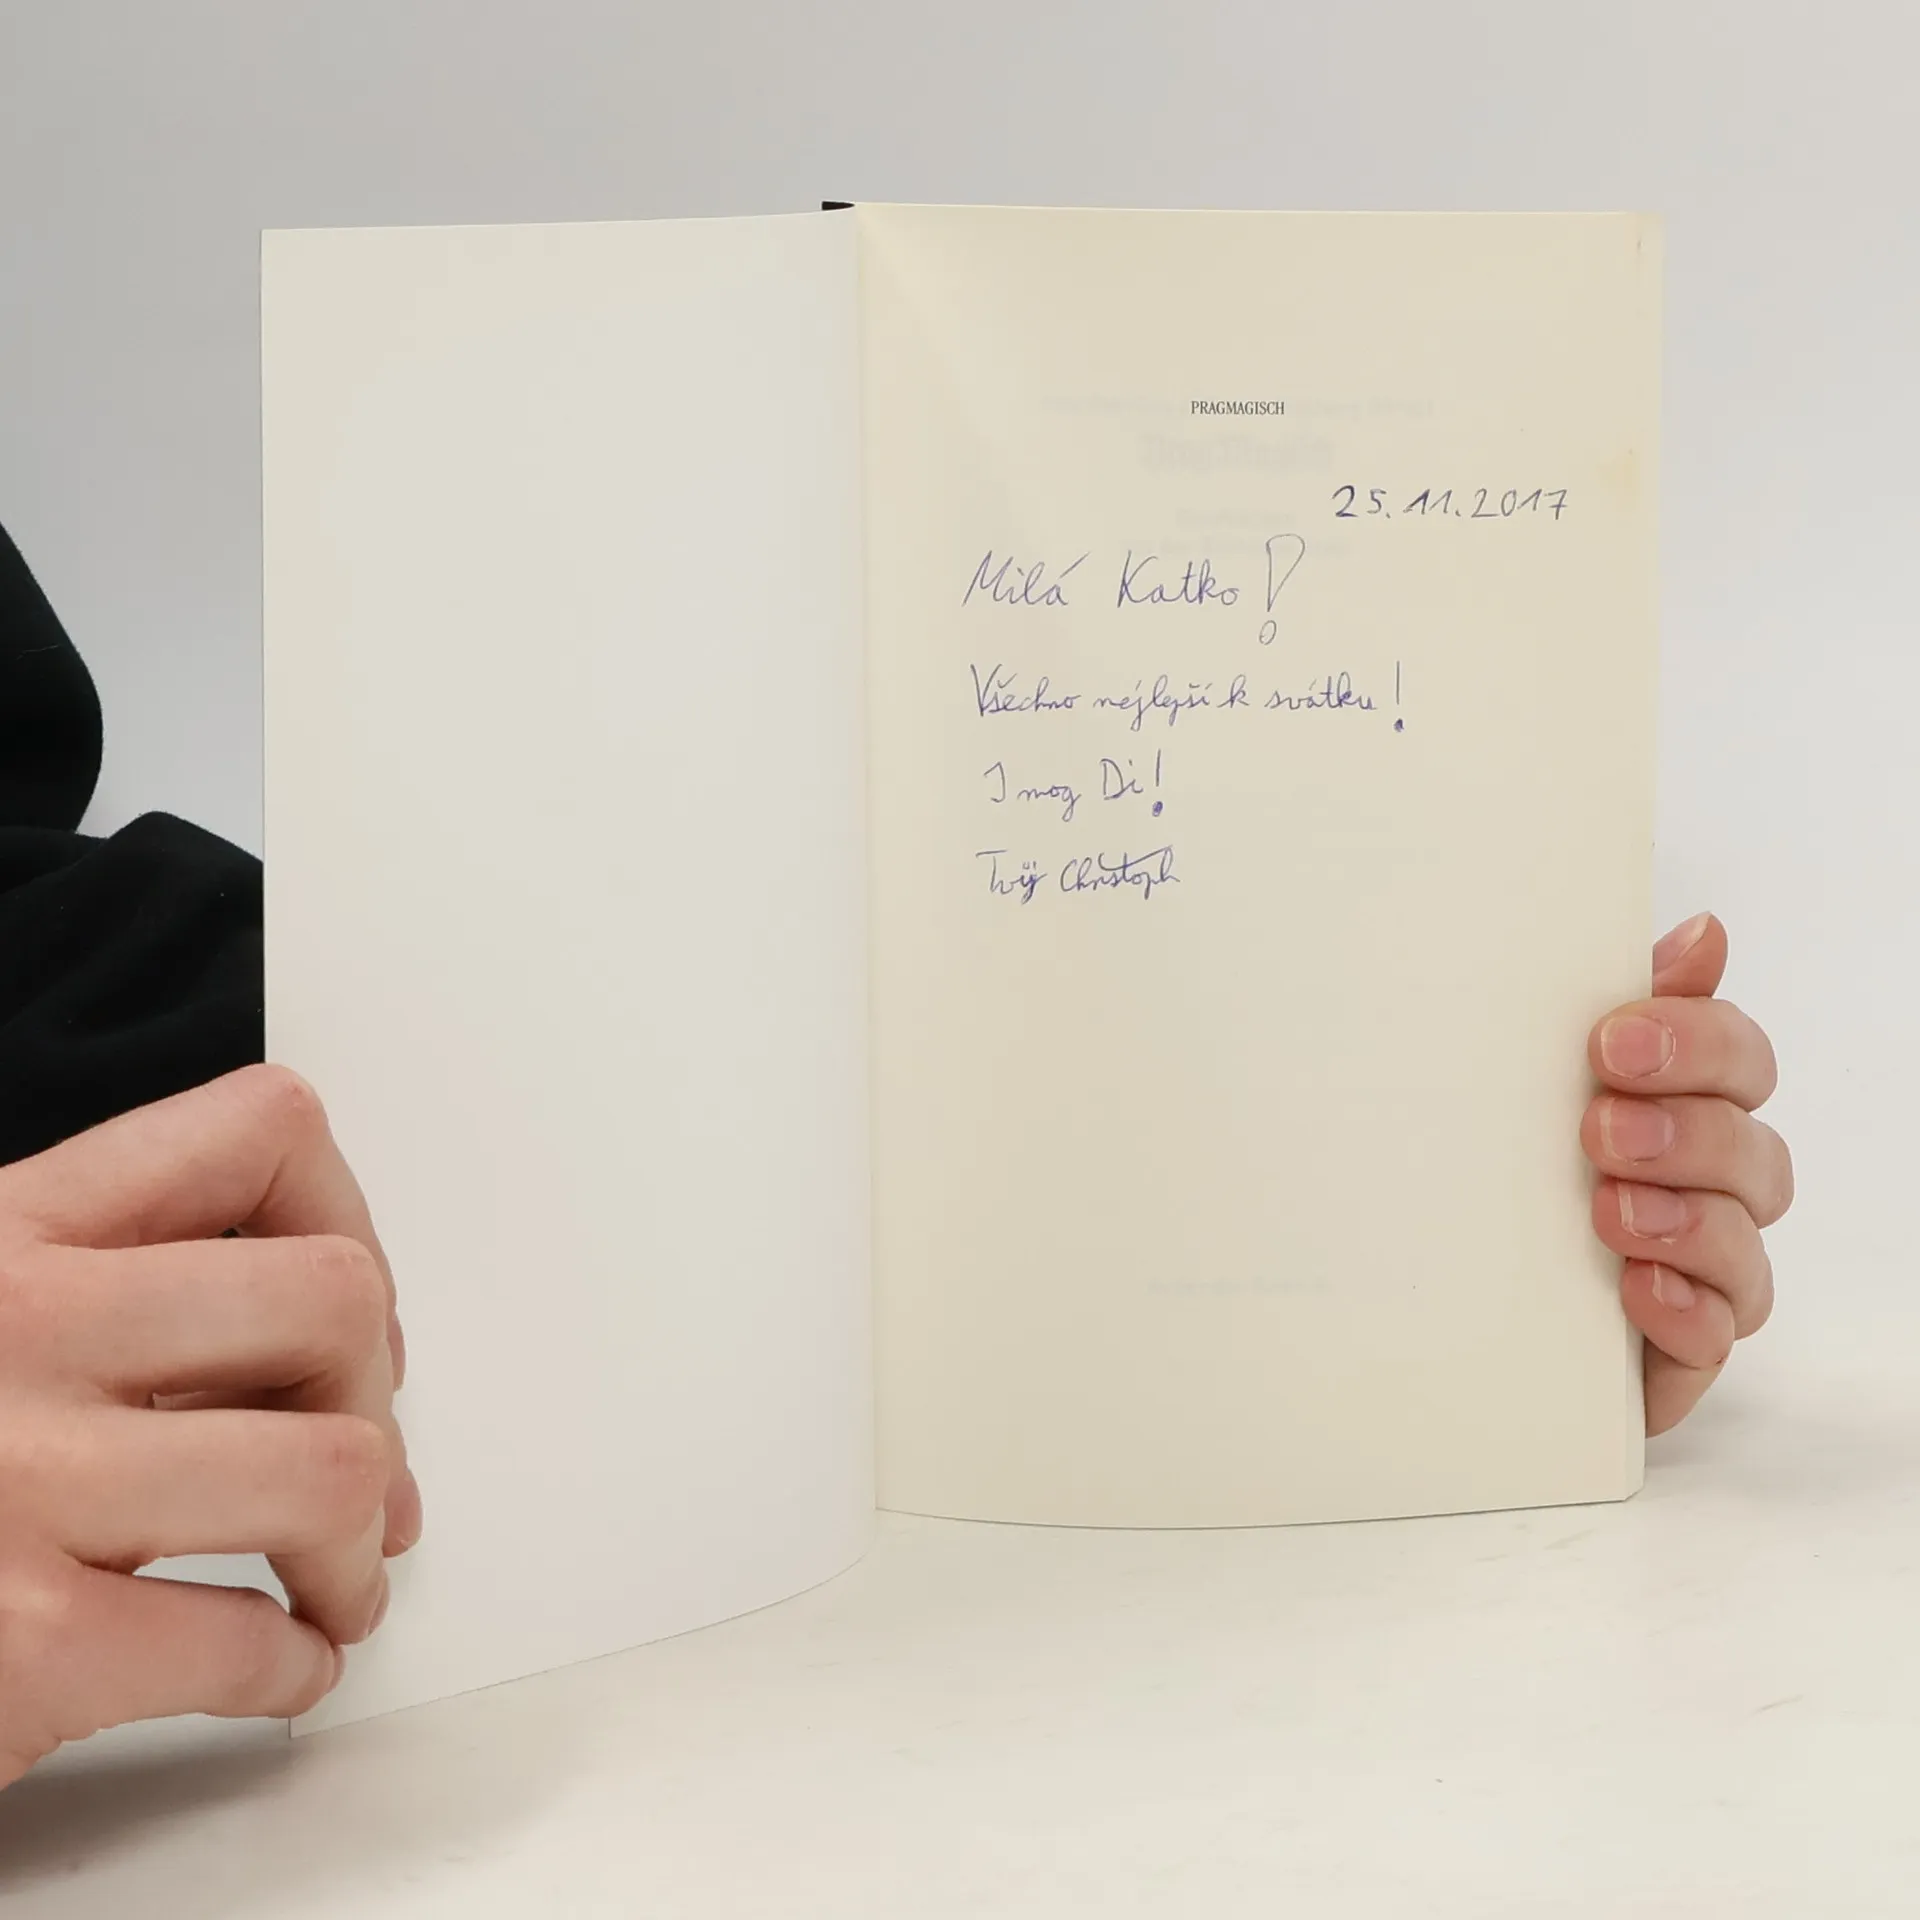 PRAGMAGISCH
25.11.2017
Milá Katko!
Všechno nejlepší k svátku!
I mog Di!
Tvůj Christoph